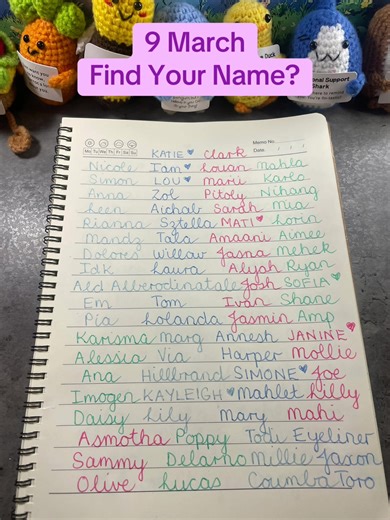 9 March
Find Your Name?
Memo No.
Mo Tu We Th Fr Sa Su
Date
KATIE Clark
Nicole Iam Louan Mahla
Simon LOU Marii Karlo
Anna Zoi Pitoly Nihang
Leen Aichab Sarah Mia
Rianna Sztella MATI Lorin
Mandz Tala Amaani Aimee
Dolores Willow Jasna Mehek
Idk Laura Aliyah Ryan
Aed Alberodinatale Josh SOFIA
Em Tom Ivan Shane
Pia Lolanda Jasmin Amp
Karisma Marg Annesh JANINE
Alessia Via Harper Mollie
Ana Hillbrand SIMONE Joe
Imogen KAYLEIGH Mahlet Lilly
Daisy Lily Mary Mahi
Asmotha Poppy Todi Eyeliner
Sammy Delarho Millie Jaxon
Olive Lucas Coumba Toro